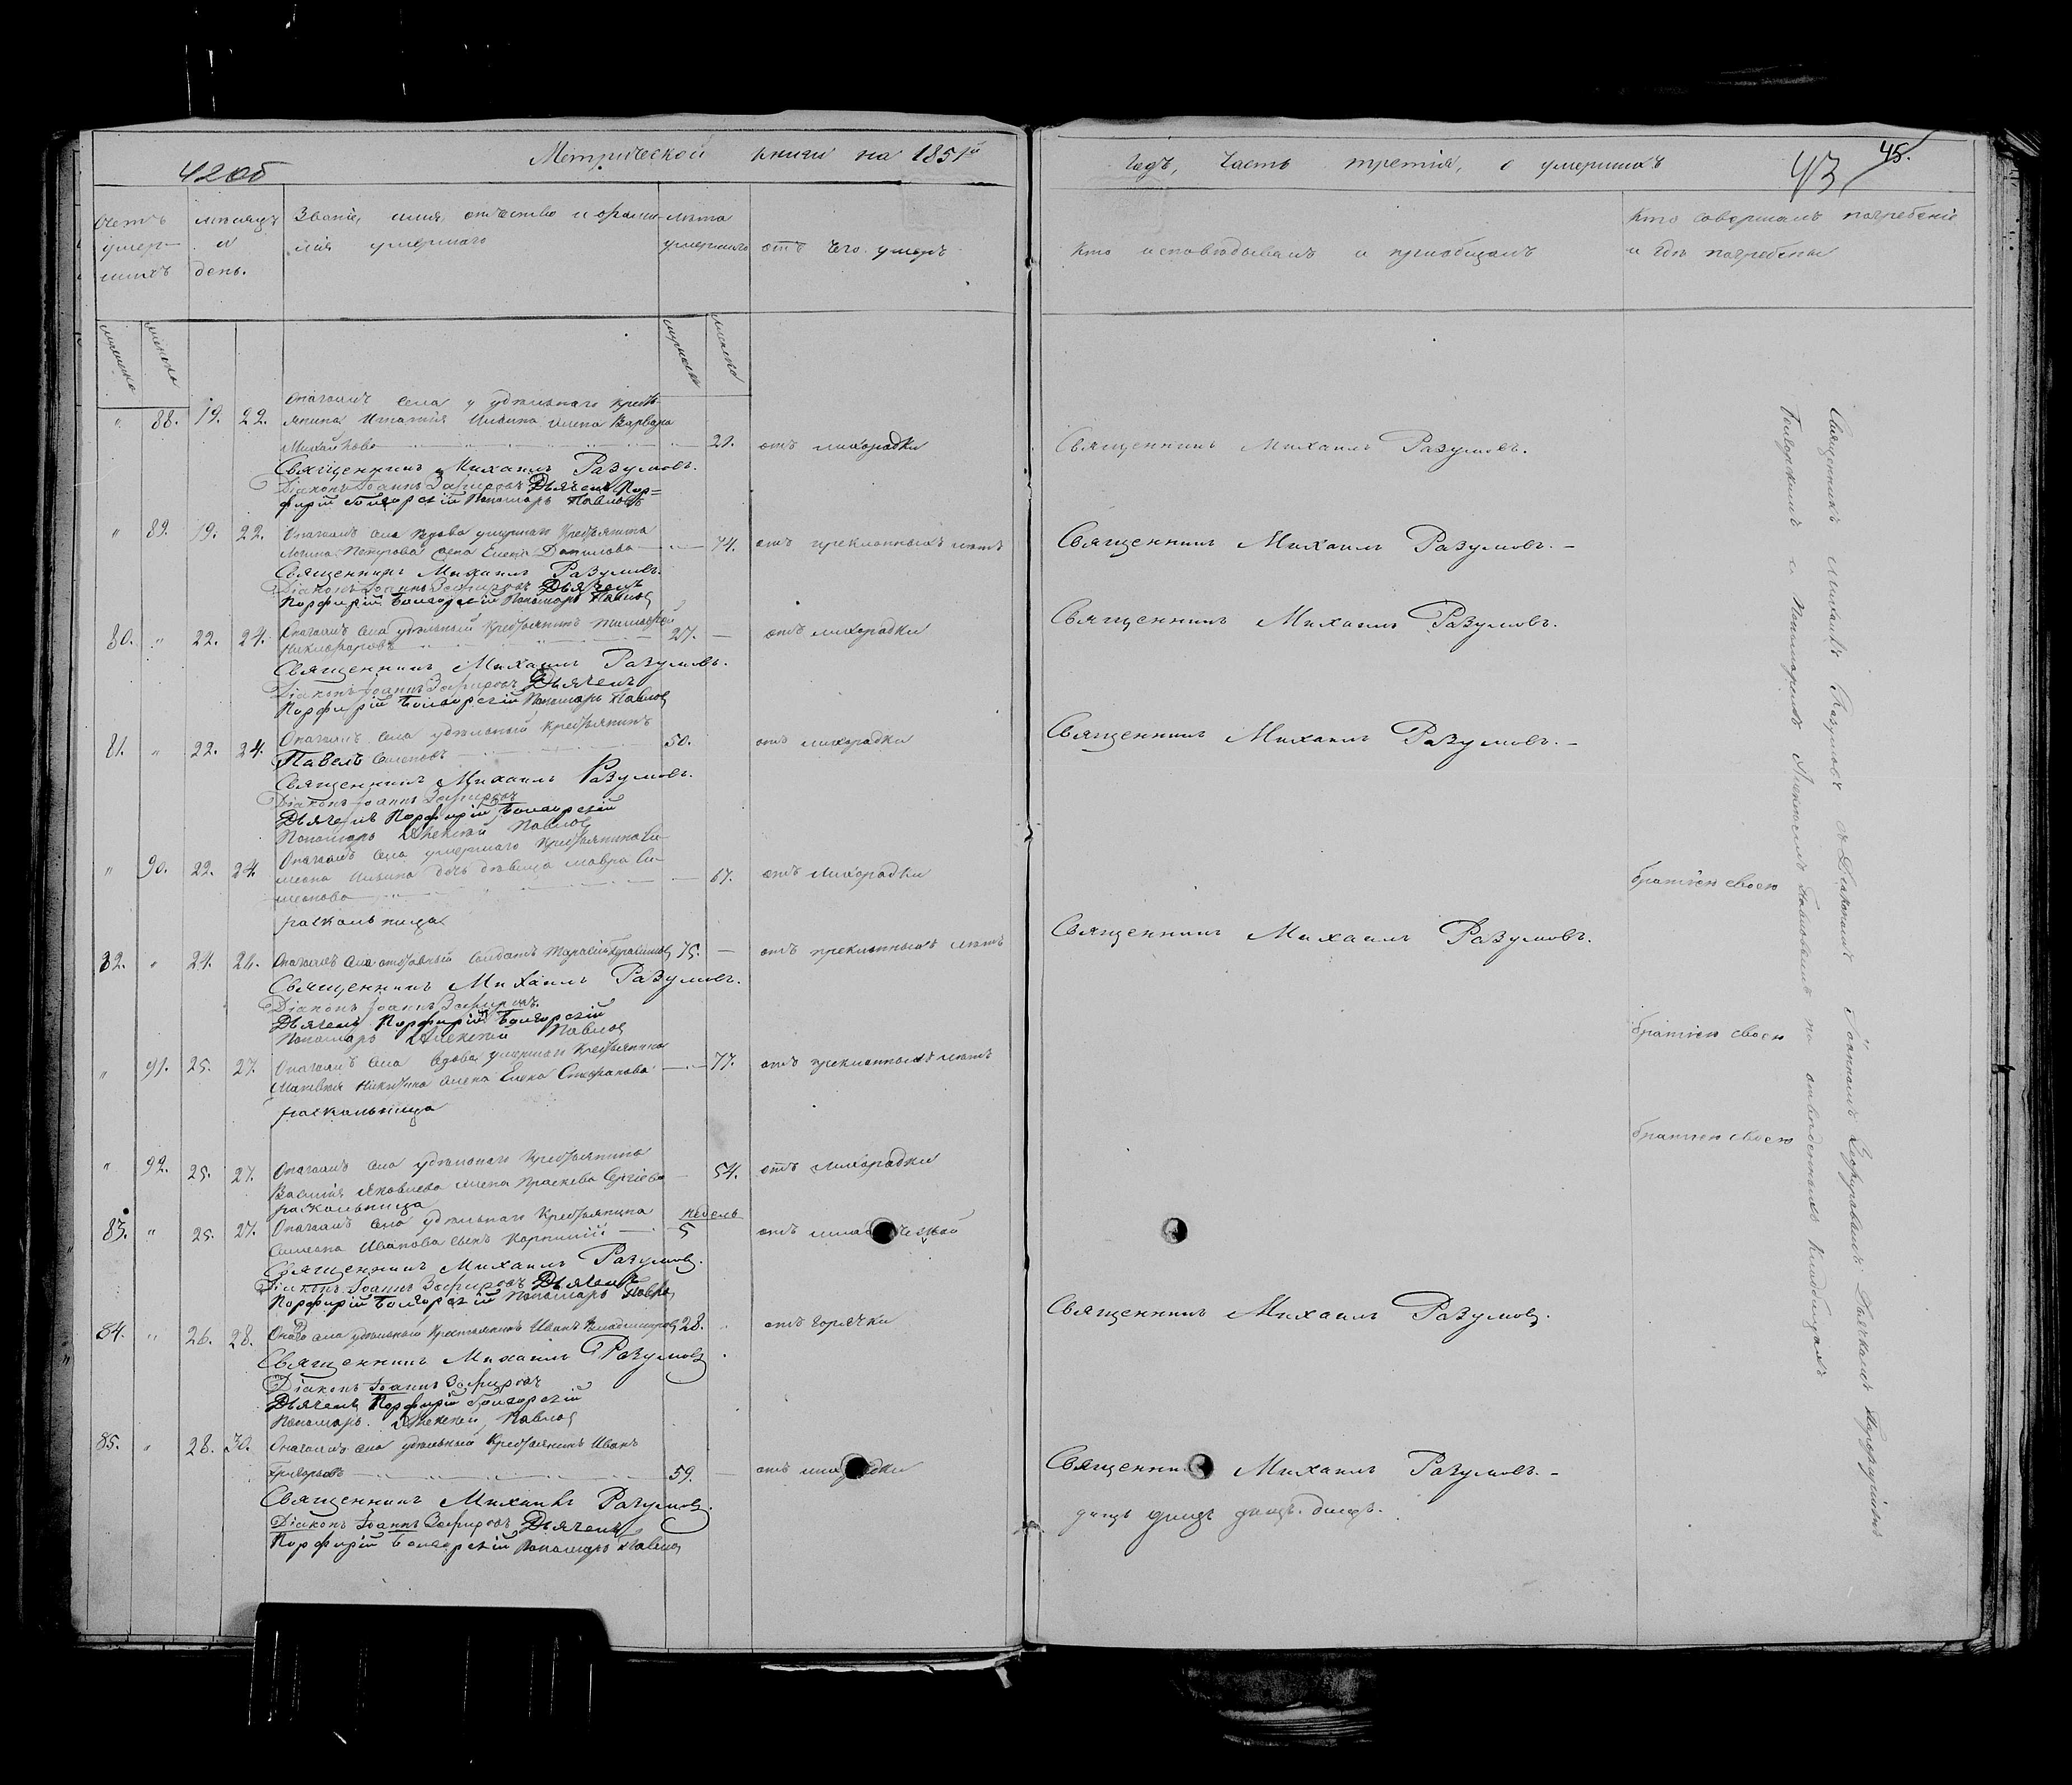 42 об
Метрической книги на 1851й
годъ, часть третія, о умершихъ
43
45.
Счетъ умер-шихъ
мѣсяцъ и день.
Званіе, имя, отчество и фами-
лія умершаго
лѣта умершаго
отъ чего умеръ
Кто исповѣдывалъ и пріобщалъ
Кто совершалъ погребеніе
и гдѣ погребены
мужеска
женска
мужеска
женска
" 88. 19. 22. Онагожъ села удѣльнаго кресть-
янина Игнатія Ильина жена Варвара
Михайлова 21. отъ лихорадки Священникъ Михаилъ Разумовъ.
Священникъ Михаилъ Разумовъ.
Діаконъ Іоаннъ Зефировъ Дьячекъ Пор=
фирій Болгорскій Пономарь Павловъ
" 89. 19. 22. Онагожъ села вдова умершаго крестьянина
Логина Петрова жена Елена Данилова 74. отъ преклонныхъ лѣтъ Священникъ Михаилъ Разумовъ.
Священникъ Михаилъ Разумовъ.
Діаконъ Іоаннъ Зефировъ Дьячекъ
Порфирій Болгорскій Пономарь Павловъ
80. " 22. 24. Онагожъ села удѣльный крестьянинъ
Никифоровъ 27. отъ лихорадки Священникъ Михаилъ Разумовъ.
Священникъ Михаилъ Разумовъ.
Діаконъ Іоаннъ Зефировъ Дьячекъ
Порфирій Болгорскій Пономарь Павловъ
81. " 22. 24. Онагожъ села удѣльный крестьянинъ
Павелъ Семеновъ 50. отъ лихорадки Священникъ Михаилъ Разумовъ.
Священникъ Михаилъ Разумовъ.
Діаконъ Іоаннъ Зефировъ
Дьячекъ Порфирій Болгорскій
Пономарь Алексѣй Павловъ
" 90. 22. 24. Онагожъ села умершаго крестьянина Си-
меона Ильина дочь дѣвица Мавра Си-
меонова 67. отъ лихорадки братіею своею
раскольница
82. " 24. 26. Онагожъ села отставный солдатъ Тарасій Герасимовъ 75. отъ преклонныхъ лѣтъ Священникъ Михаилъ Разумовъ.
Священникъ Михаилъ Разумовъ.
Діаконъ Іоаннъ Зефировъ.
Дьячекъ Порфирій Болгорскій
Пономарь Алексѣй Павловъ
" 91. 25. 27. Онагожъ села вдова умершаго крестьянина
Матвѣя Никитина жена Елена Стефанова 77. отъ преклонныхъ лѣтъ братіею своею
раскольница
" 92. 25. 27. Онагожъ села удѣльнаго крестьянина
Василія Яковлева жена Праскева Сергіева 54. отъ лихорадки братіею своею
раскольница
83. " 25. 27. Онагожъ села удѣльнаго крестьянина недель
Симеона Иванова сынъ Корнилій 5
Священникъ Михаилъ Разумовъ.
Діаконъ Іоаннъ Зефировъ Дьячекъ
Порфирій Болгорскій Пономарь Павловъ
84. " 26. 28. Онаго села удѣльный крестьянинъ Иванъ Владимировъ 28. отъ горячки Священникъ Михаилъ Разумовъ.
Священникъ Михаилъ Разумовъ.
Діаконъ Іоаннъ Зефировъ
Дьячекъ Порфирій Болгорскій
Пономарь Алексѣй Павловъ
85. " 28. 30. Онагожъ села удѣльный крестьянинъ Иванъ
Григорьевъ 59. отъ лихорадки Священникъ Михаилъ Разумовъ.
Священникъ Михаилъ Разумовъ.
Діаконъ Іоаннъ Зефировъ Дьячекъ
Порфирій Болгорскій Пономарь Павловъ
Священникъ Михаилъ Разумовъ съ Діакономъ Іоанномъ Зефировымъ Дьячкомъ Порфиріемъ
Болгорскимъ и Пономаремъ Алексѣемъ Павловымъ на отведенномъ кладбищѣ